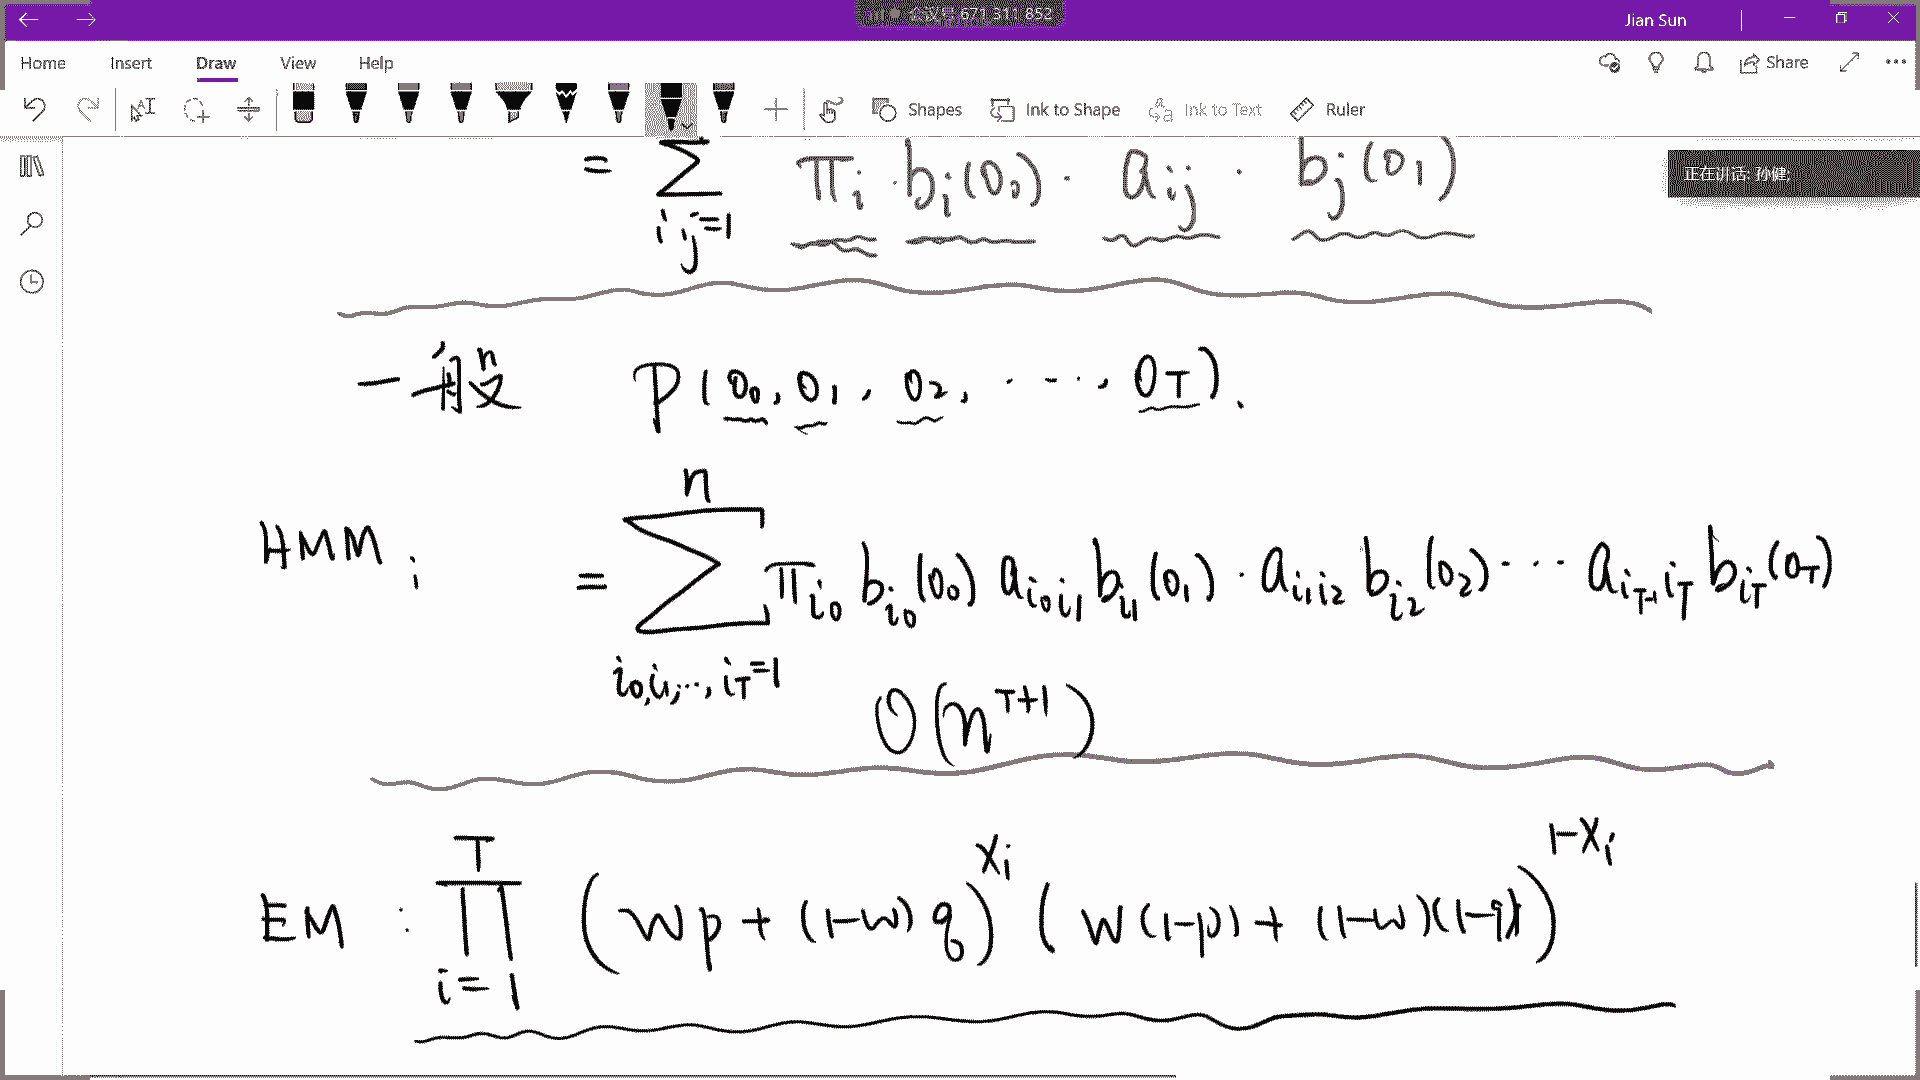 会议号 671 311 852
Jian Sun
Home Insert Draw View Help
Share
Shapes Ink to Shape Ink to Text Ruler
正在讲话: 孙健;
= ∑_{i,j=1} π_i · b_i(o_0) · a_{ij} · b_j(o_1)
n
一般 P(o_0, o_1, o_2, ⋯, o_T).
HMM; = ∑_{i_0,i_1,⋯,i_T=1}^{n} π_{i_0} b_{i_0}(o_0) a_{i_0i_1} b_{i_1}(o_1) · a_{i_1i_2} b_{i_2}(o_2) ⋯ a_{i_{T-1}i_T} b_{i_T}(o_T)
O(n^{T+1})
EM: ∏_{i=1}^{T} (wp + (1-w)q)^{x_i} (w(1-p) + (1-w)(1-q))^{1-x_i}